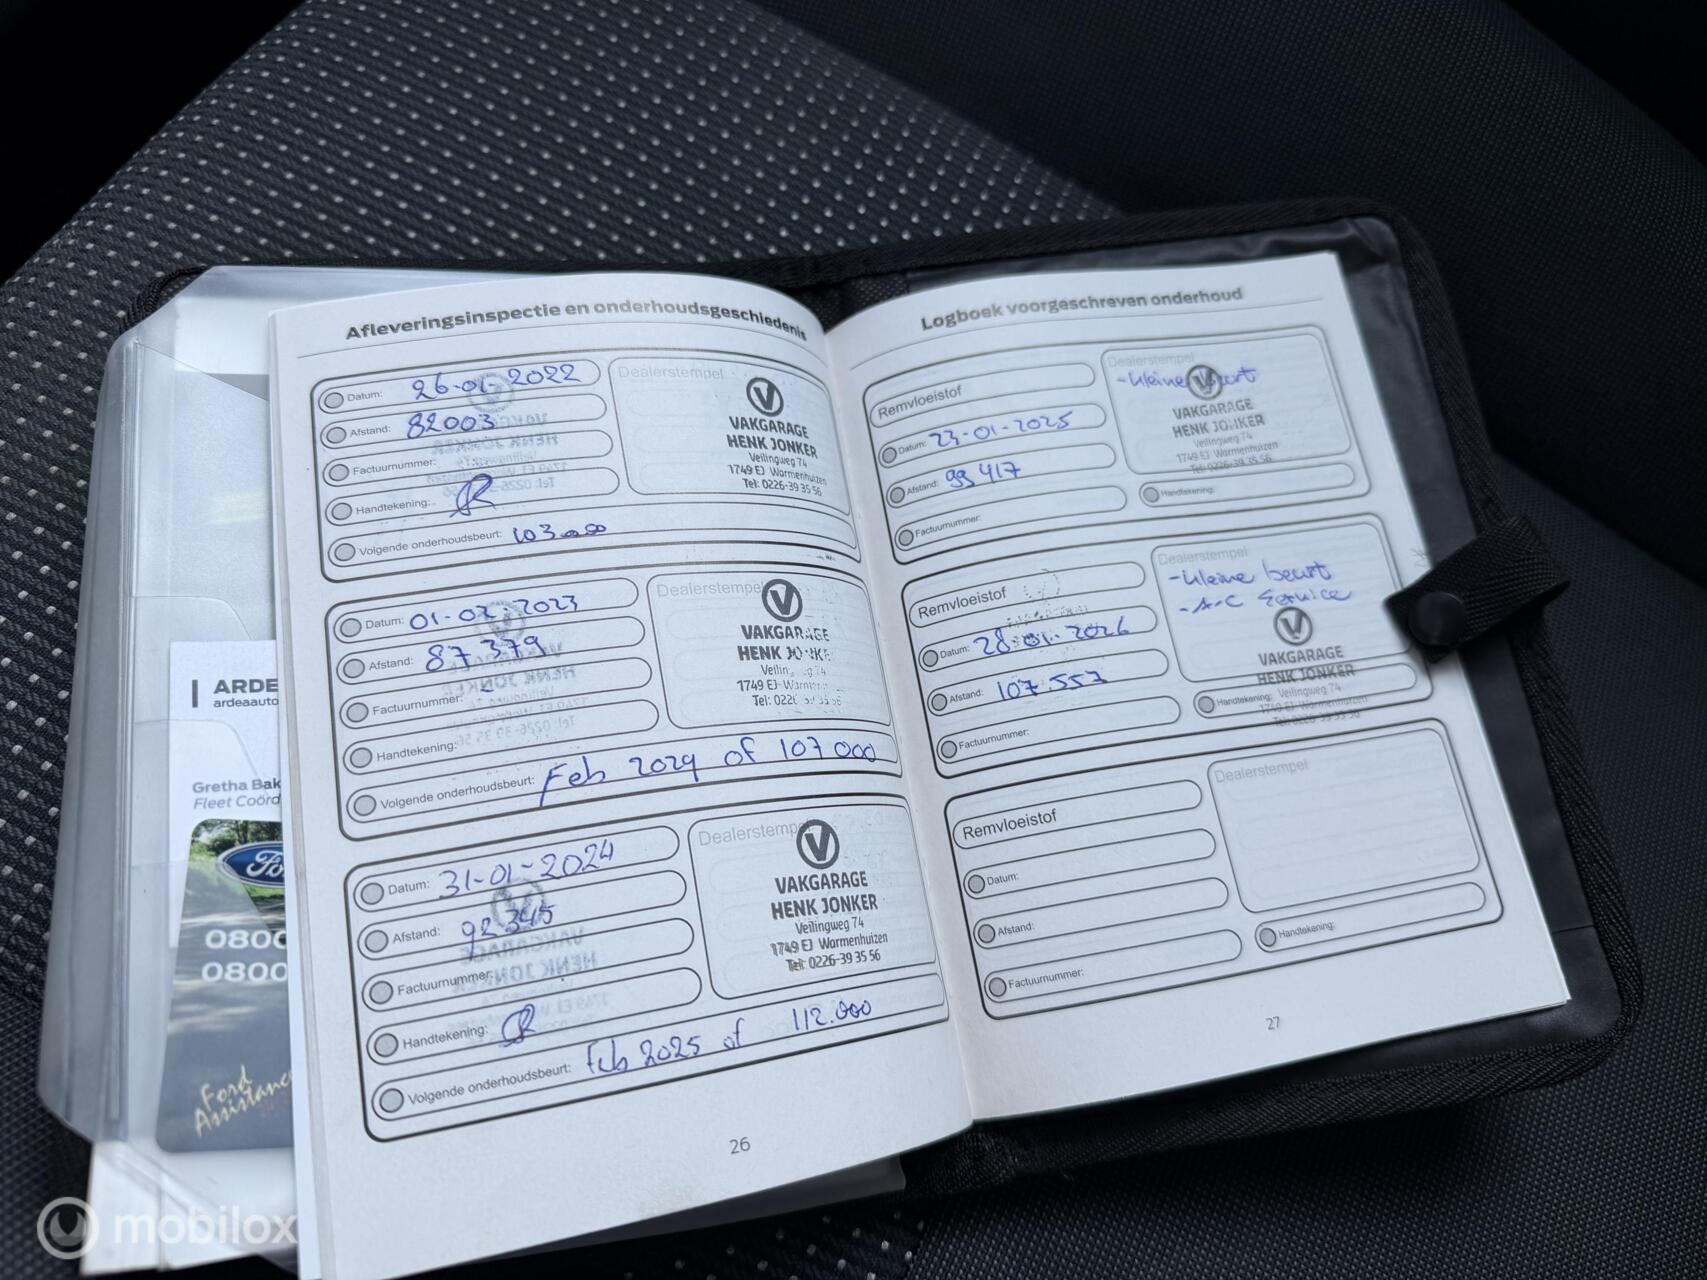 Afleveringsinspectie en onderhoudsgeschiedenis
Datum: 26-01-2022
Afstand: 82003
Factuurnummer:
Handtekening:
Volgende onderhoudsbeurt: 103.000
Dealerstempel
VAKGARAGE
HENK JONKER
Veilingweg 74
1749 EJ Warmenhuizen
Tel: 0226-39 35 56
Datum: 01-02-2023
Afstand: 87379
Factuurnummer: -
Handtekening:
Volgende onderhoudsbeurt: Feb 2024 of 107000
Dealerstempel
VAKGARAGE
HENK JONKE
Veilin g 74
1749 EJ Warm
Tel: 0226 35 56
Datum: 31-01-2024
Afstand: 92345
Factuurnummer:
Handtekening:
Volgende onderhoudsbeurt: Feb 2025 of 112.000
Dealerstempel
VAKGARAGE
HENK JONKER
Veilingweg 74
1749 EJ Warmenhuizen
Tel: 0226-39 35 56
26
Logboek voorgeschreven onderhoud
Remvloeistof
Datum: 23-01-2025
Afstand: 99417
Factuurnummer:
Dealerstempel
-kleine beurt
VAKGARAGE
HENK JONKER
Veilingweg 74
1749 EJ Warmenhuizen
Tel: 0226-39 35 56
Handtekening:
Remvloeistof
Datum: 28-01-2026
Afstand: 107.557
Factuurnummer:
Dealerstempel
-kleine beurt
-A-C Service
VAKGARAGE
HENK JONKER
Handtekening: Veilingweg 74
1749 EJ Warmenhuizen
Tel: 0226-39 35 56
Remvloeistof
Datum:
Afstand:
Factuurnummer:
Dealerstempel
Handtekening:
27
ARDE
ardeaauto
Gretha Bak
Fleet Coörd
Ford
0800
0800
Ford
Assistance
mobilox